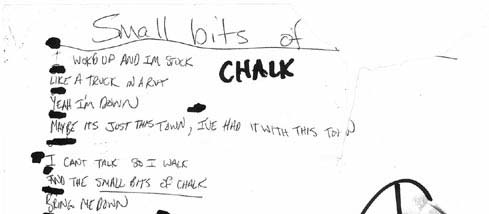 Small bits of
CHALK
I WOKD UP AND IM STUCK
LIKE A TRUCK IN A RUT
YEAH I'M DOWN
MAYBE ITS JUST THIS TOWN, I'VE HAD IT WITH THIS TOWN
I CANT TALK SO I WALK
AND THE SMALL BITS OF CHALK
BRING ME DOWN